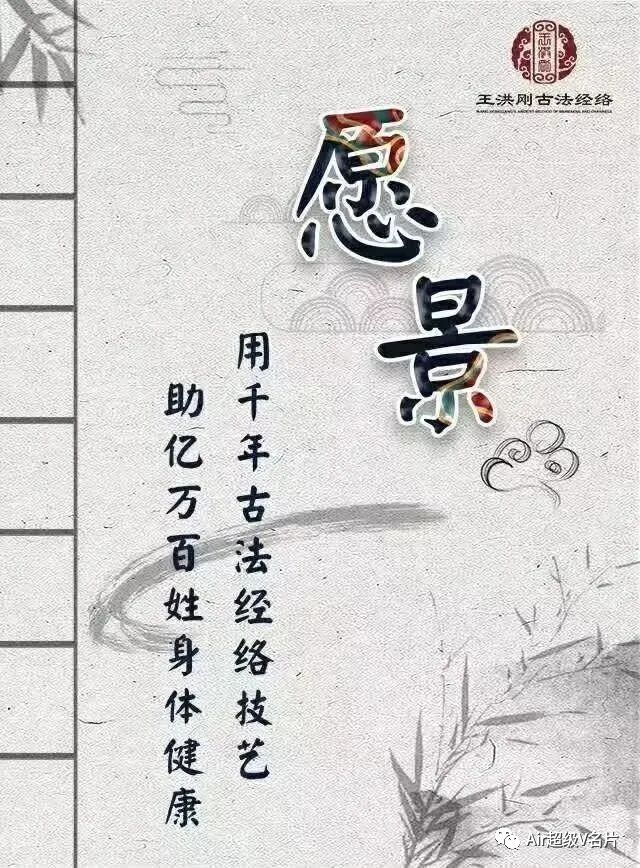 王洪刚古法经络
愿景
用千年古法经络技艺
助亿万百姓身体健康
Air超级V名片